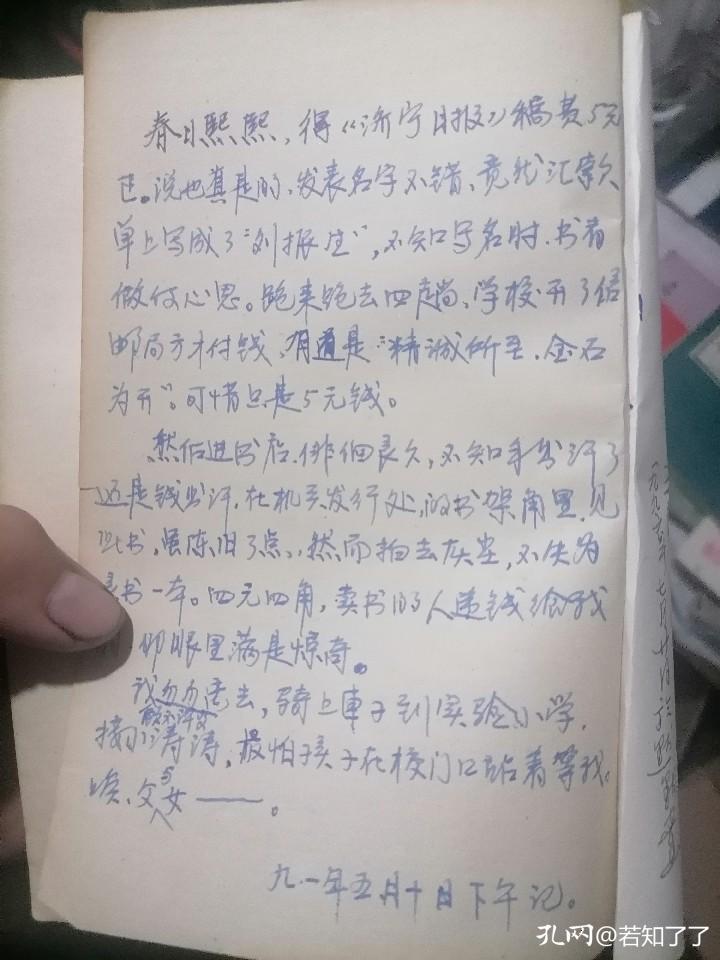 春日熙熙，得《济宁日报》稿费5元
正。说也真是的、发表名字不错、竟然汇款
单上写成了“刘振生”，不知写名时、书者
做何心思。跑来跑去四趟、学校开了信
邮局方才付钱，有道是：“精诚所至、金石
为开”。可惜只是5元钱。
然后进书店、徘徊良久，不知手出汗了
还是钱出汗，在机关发行处，的书架角里，见
此书，虽陈旧了点，然而拍去灰尘，不失为
书一本。四元四角，卖书的人送钱给我
那眼里满是惊奇。
我匆匆离去，骑上车子到实验小学，
接小涛涛，最怕孩子在校门口站着等我。
唉、父与女——。
九一年五月十日下午记。
孔网@若知了了